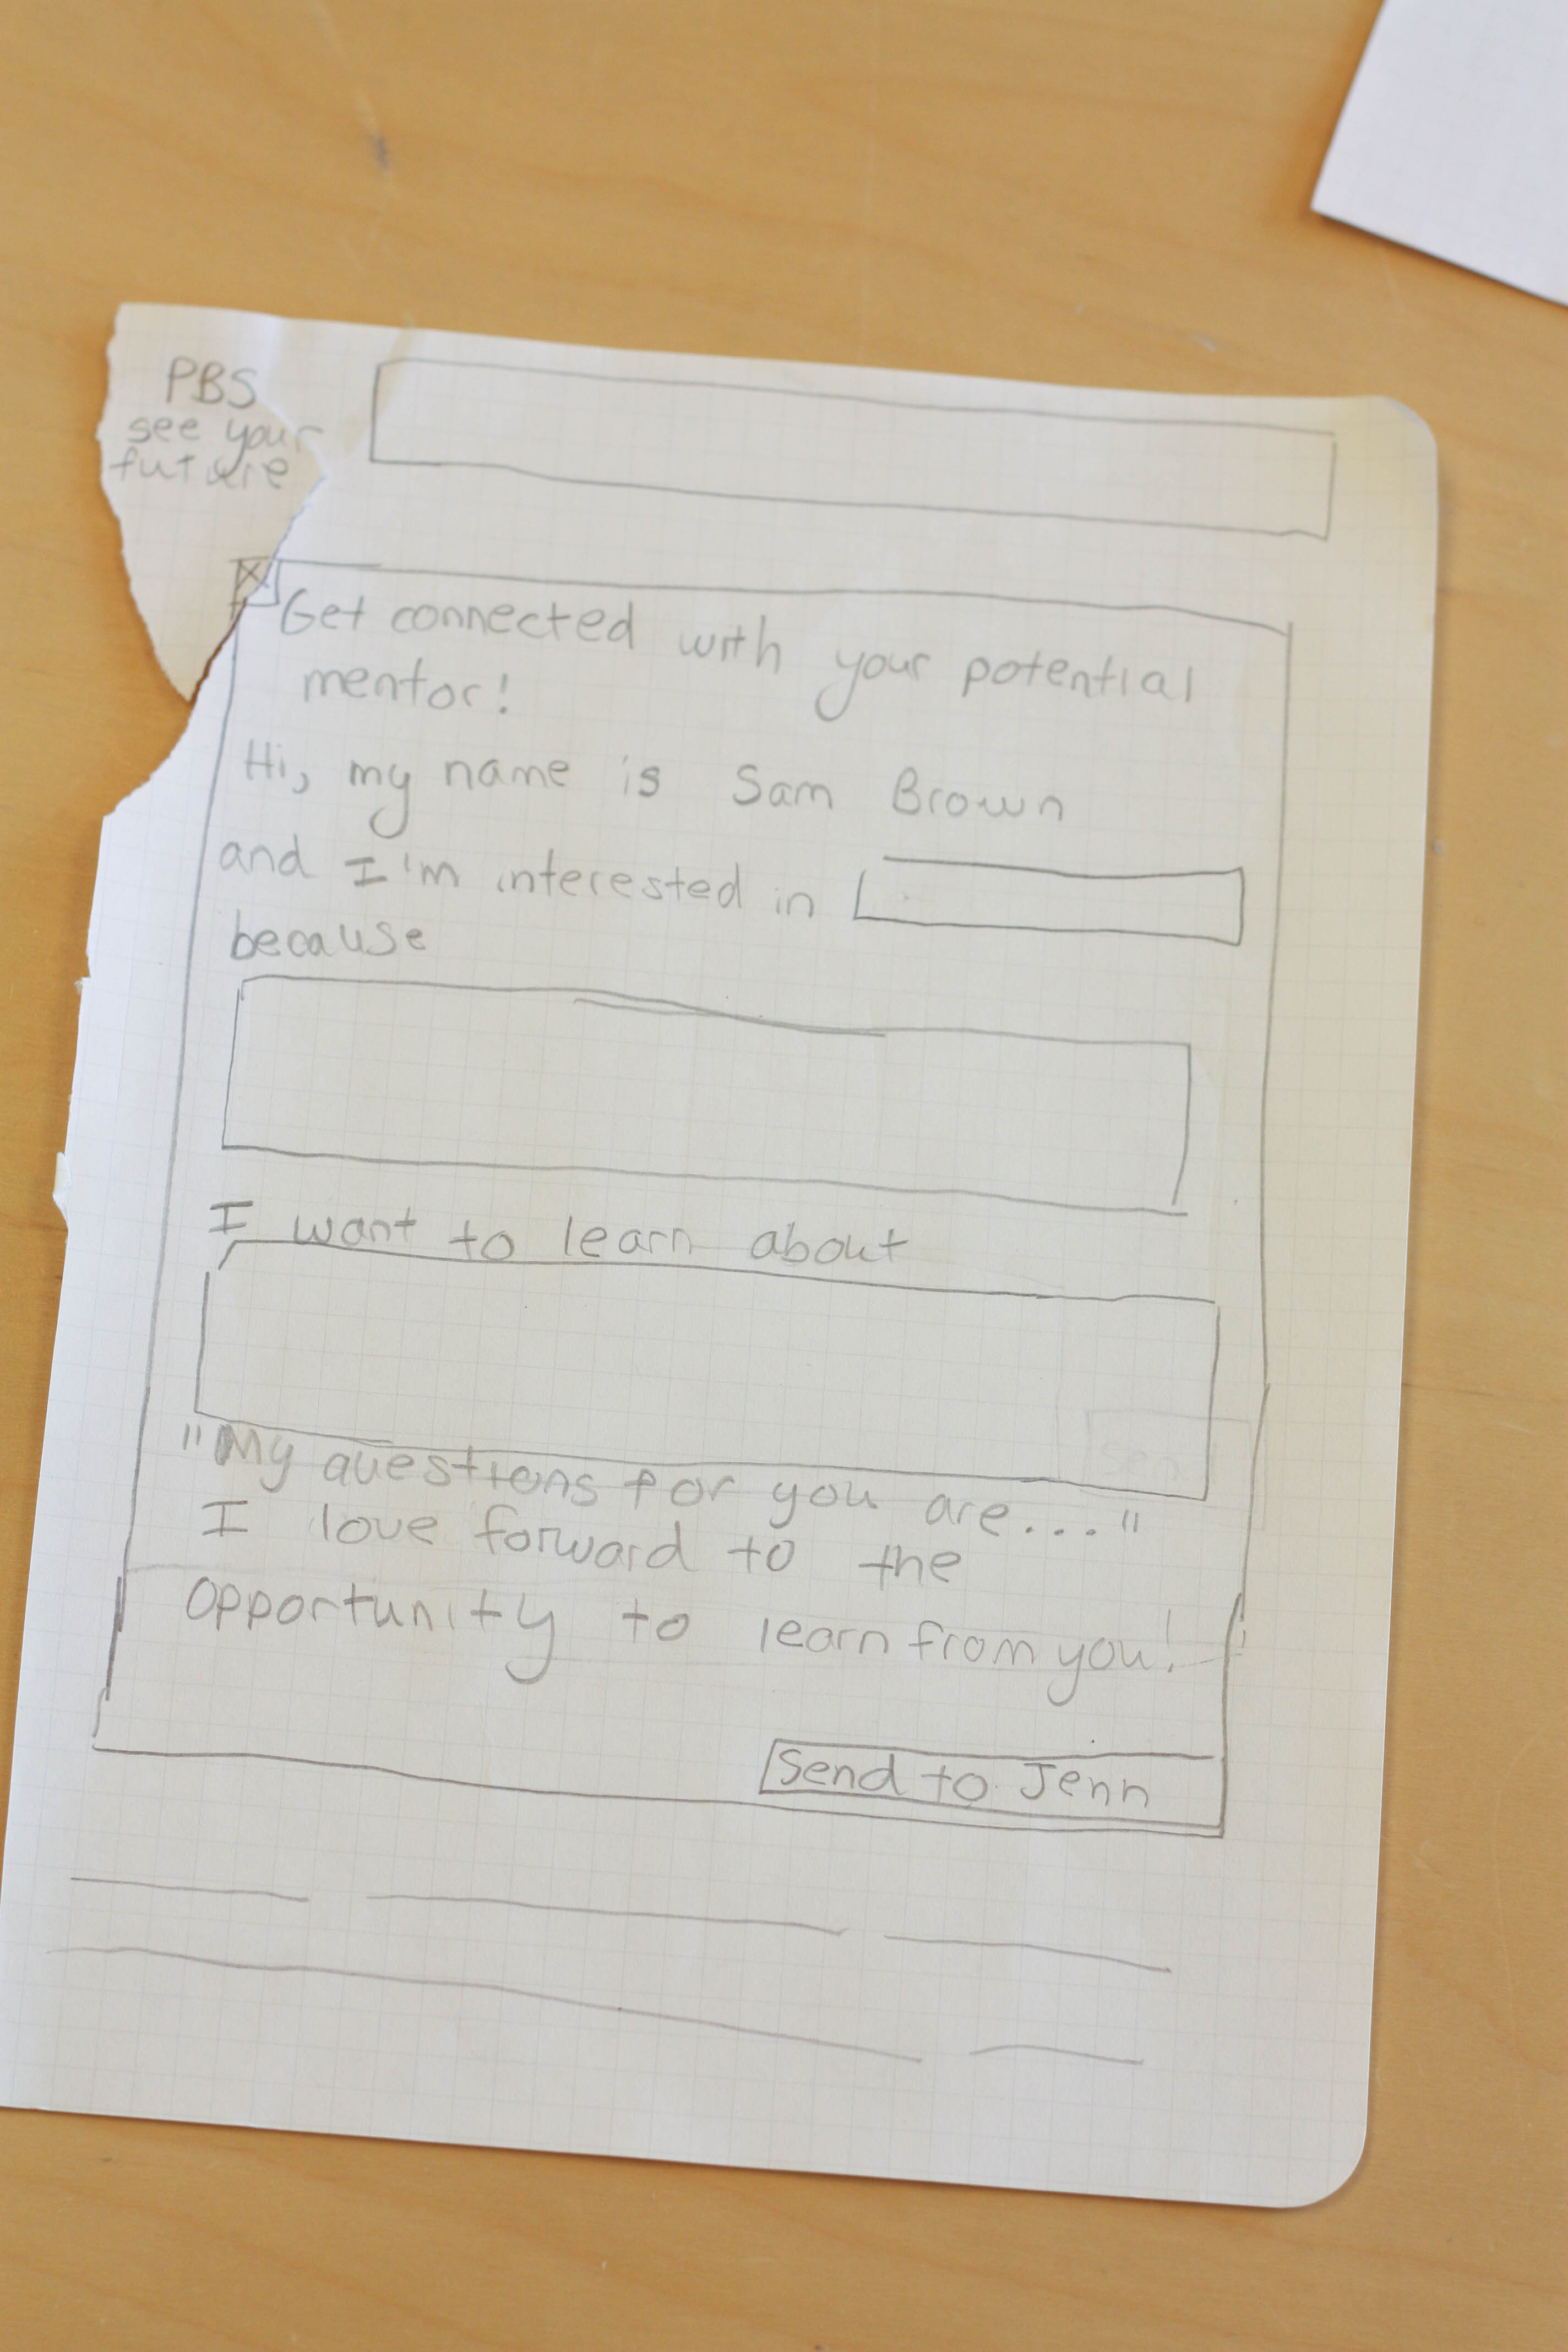 PBS
see your
future
Get connected with your potential
mentor!
Hi, my name is Sam Brown
and I'm interested in
because
I want to learn about
"My questions for you are..."
I love forward to the
opportunity to learn from you!
Send to Jenn